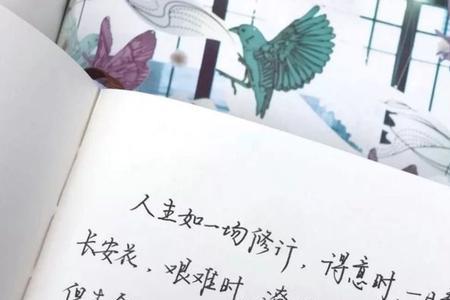 人生如一场修行，得意时，一日
长安花，艰难时，
但